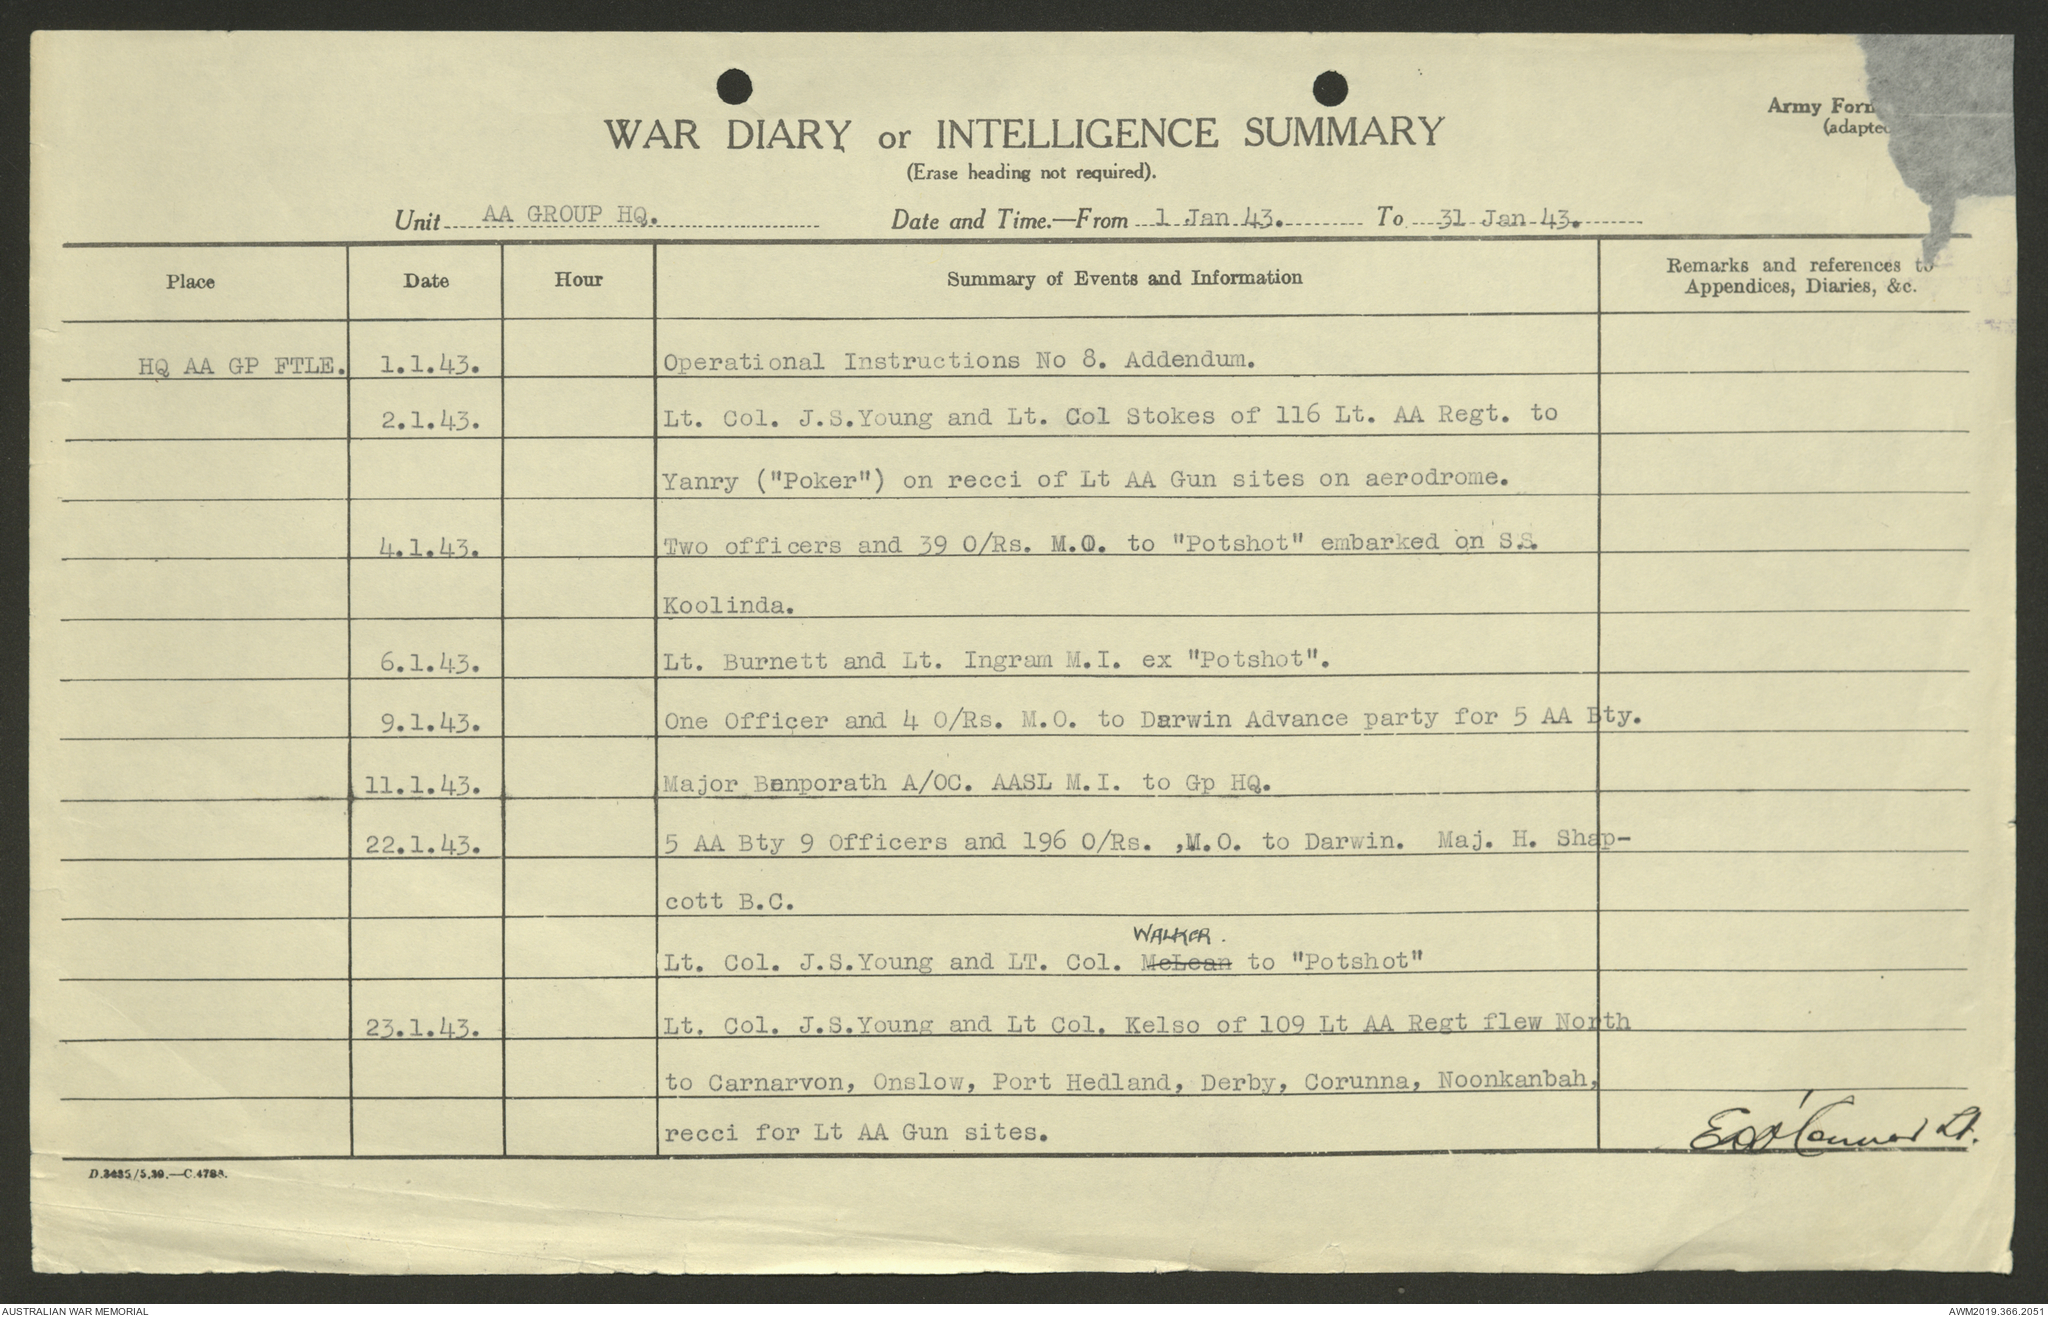 Army For
(adapted
WAR DIARY or INTELLIGENCE SUMMARY
(Erase heading not required).
Unit AA GROUP HQ. Date and Time.—From 1 Jan 43. To 31 Jan 43.
Place Date Hour Summary of Events and Information Remarks and references to
Appendices, Diaries, &c.
HQ AA GP FTLE. 1.1.43. Operational Instructions No 8. Addendum.
2.1.43. Lt. Col. J.S.Young and Lt. Col Stokes of 116 Lt. AA Regt. to
Yanry ("Poker") on recci of Lt AA Gun sites on aerodrome.
4.1.43. Two officers and 39 O/Rs. M.O. to "Potshot" embarked on S.S.
Koolinda.
6.1.43. Lt. Burnett and Lt. Ingram M.I. ex "Potshot".
9.1.43. One Officer and 4 O/Rs. M.O. to Darwin Advance party for 5 AA Bty.
11.1.43. Major Benporath A/OC. AASL M.I. to Gp HQ.
22.1.43. 5 AA Bty 9 Officers and 196 O/Rs. ,M.O. to Darwin. Maj. H. Shap-
cott B.C.
WALKER.
Lt. Col. J.S.Young and LT. Col. McLean to "Potshot"
23.1.43. Lt. Col. J.S.Young and Lt Col. Kelso of 109 Lt AA Regt flew North
to Carnarvon, Onslow, Port Hedland, Derby, Corunna, Noonkanbah,
recci for Lt AA Gun sites.
O'Connor Lt.
D.3435/5.39.—C.4788.
AUSTRALIAN WAR MEMORIAL AWM2019.366.2051